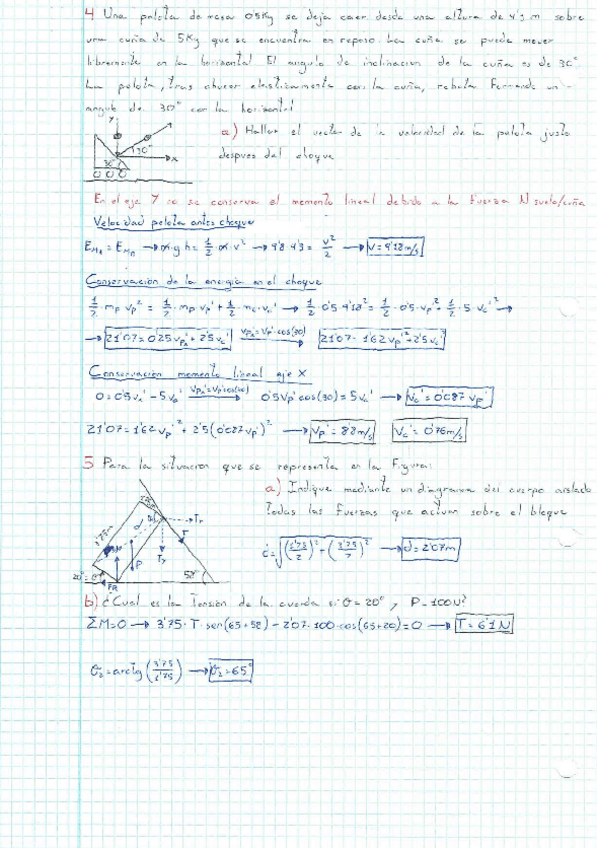 4 Una pelota de masa 0'5Kg se deja caer desde una altura de 4'3 m sobre
una cuña de 5Kg que se encuentra en reposo. La cuña se puede mover
libremente en la horizontal. El angulo de inclinacion de la cuña es de 30°
La pelota, tras chocar elasticamente con la cuña, rebota formando un
angulo de 30° con la horizontal
a) Hallar el vector de la velocidad de la pelota justo
despues del choque
y
30°
x
30°
En el eje Y no se conserva el momento lineal debido a la fuerza N suelo/cuña
Velocidad pelota antes choque
E_MA = E_MB → m·g·h = 1/2·m·v² → 9'8·4'3 = v²/2 → v = 9'18m/s
Conservación de la energia en el choque
1/2·mp vp² = 1/2·mp vp'² + 1/2·mc·vc'² → 1/2·0'5·9'18² = 1/2·0'5·vp'² + 1/2·5·vc'² →
→ 21'07 = 0'25vp'² + 2'5vc'² → 21'07 = 1'62 vp'² + 2'5vc'²
Conservación momento lineal eje X
0 = 0'5vx' - 5vc' → 0'5vp' cos(30) = 5vc' → vc' = 0'087 vp'
21'07 = 1'62vp'² + 2'5(0'087vp')² → vp' = 8'8m/s vc' = 0'76m/s
5 Para la situacion que se representa en la Figura:
a) Indique mediante un diagrama del cuerpo aislado
todas las fuerzas que actuan sobre el bloque
3'75m
d
T
P
FR
20°
52°
→ d = 2'07m
b) ¿Cual es la Tension de la cuerda si θ = 20°, y P = 100N?
ΣM = 0 → 3'75·T·sen(65+52) - 2'07·100·cos(65+20) = 0 → T = 6'1 N
θ₂ = arctg(3'75/1'75) → θ₂ = 65°